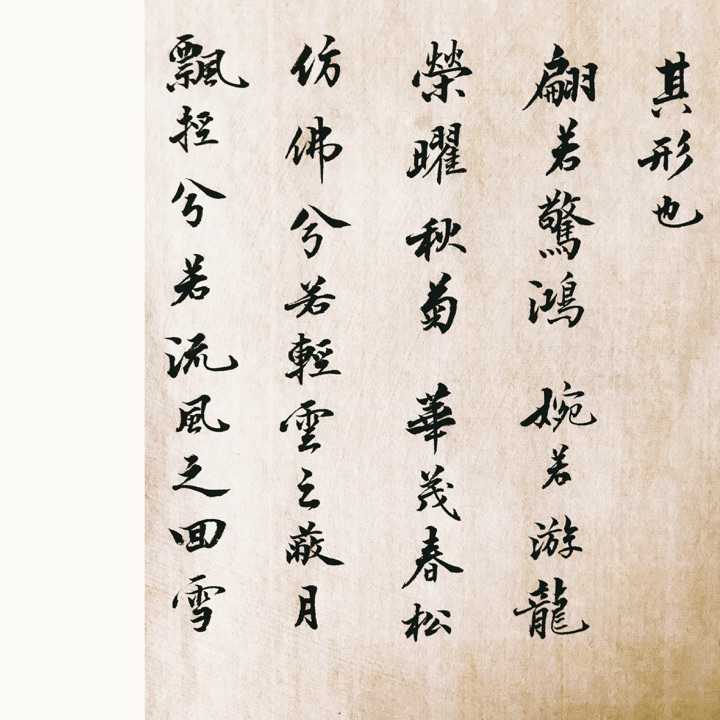 其形也
翩若驚鴻 婉若游龍
榮曜秋菊 華茂春松
仿佛兮若輕雲之蔽月
飄挳兮若流風之囬雪